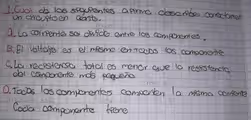 1. Cual de las siguientes afirma describe correctamente
un circuito en serie.
a. La corriente se divide entre los componentes.
B. El voltaje es el mismo en todos los componente
C. La resistencia total es menor que la resistencia
del componente más pequeño
D. Todos los componentes comparten la misma corriente
Cada componente tiene